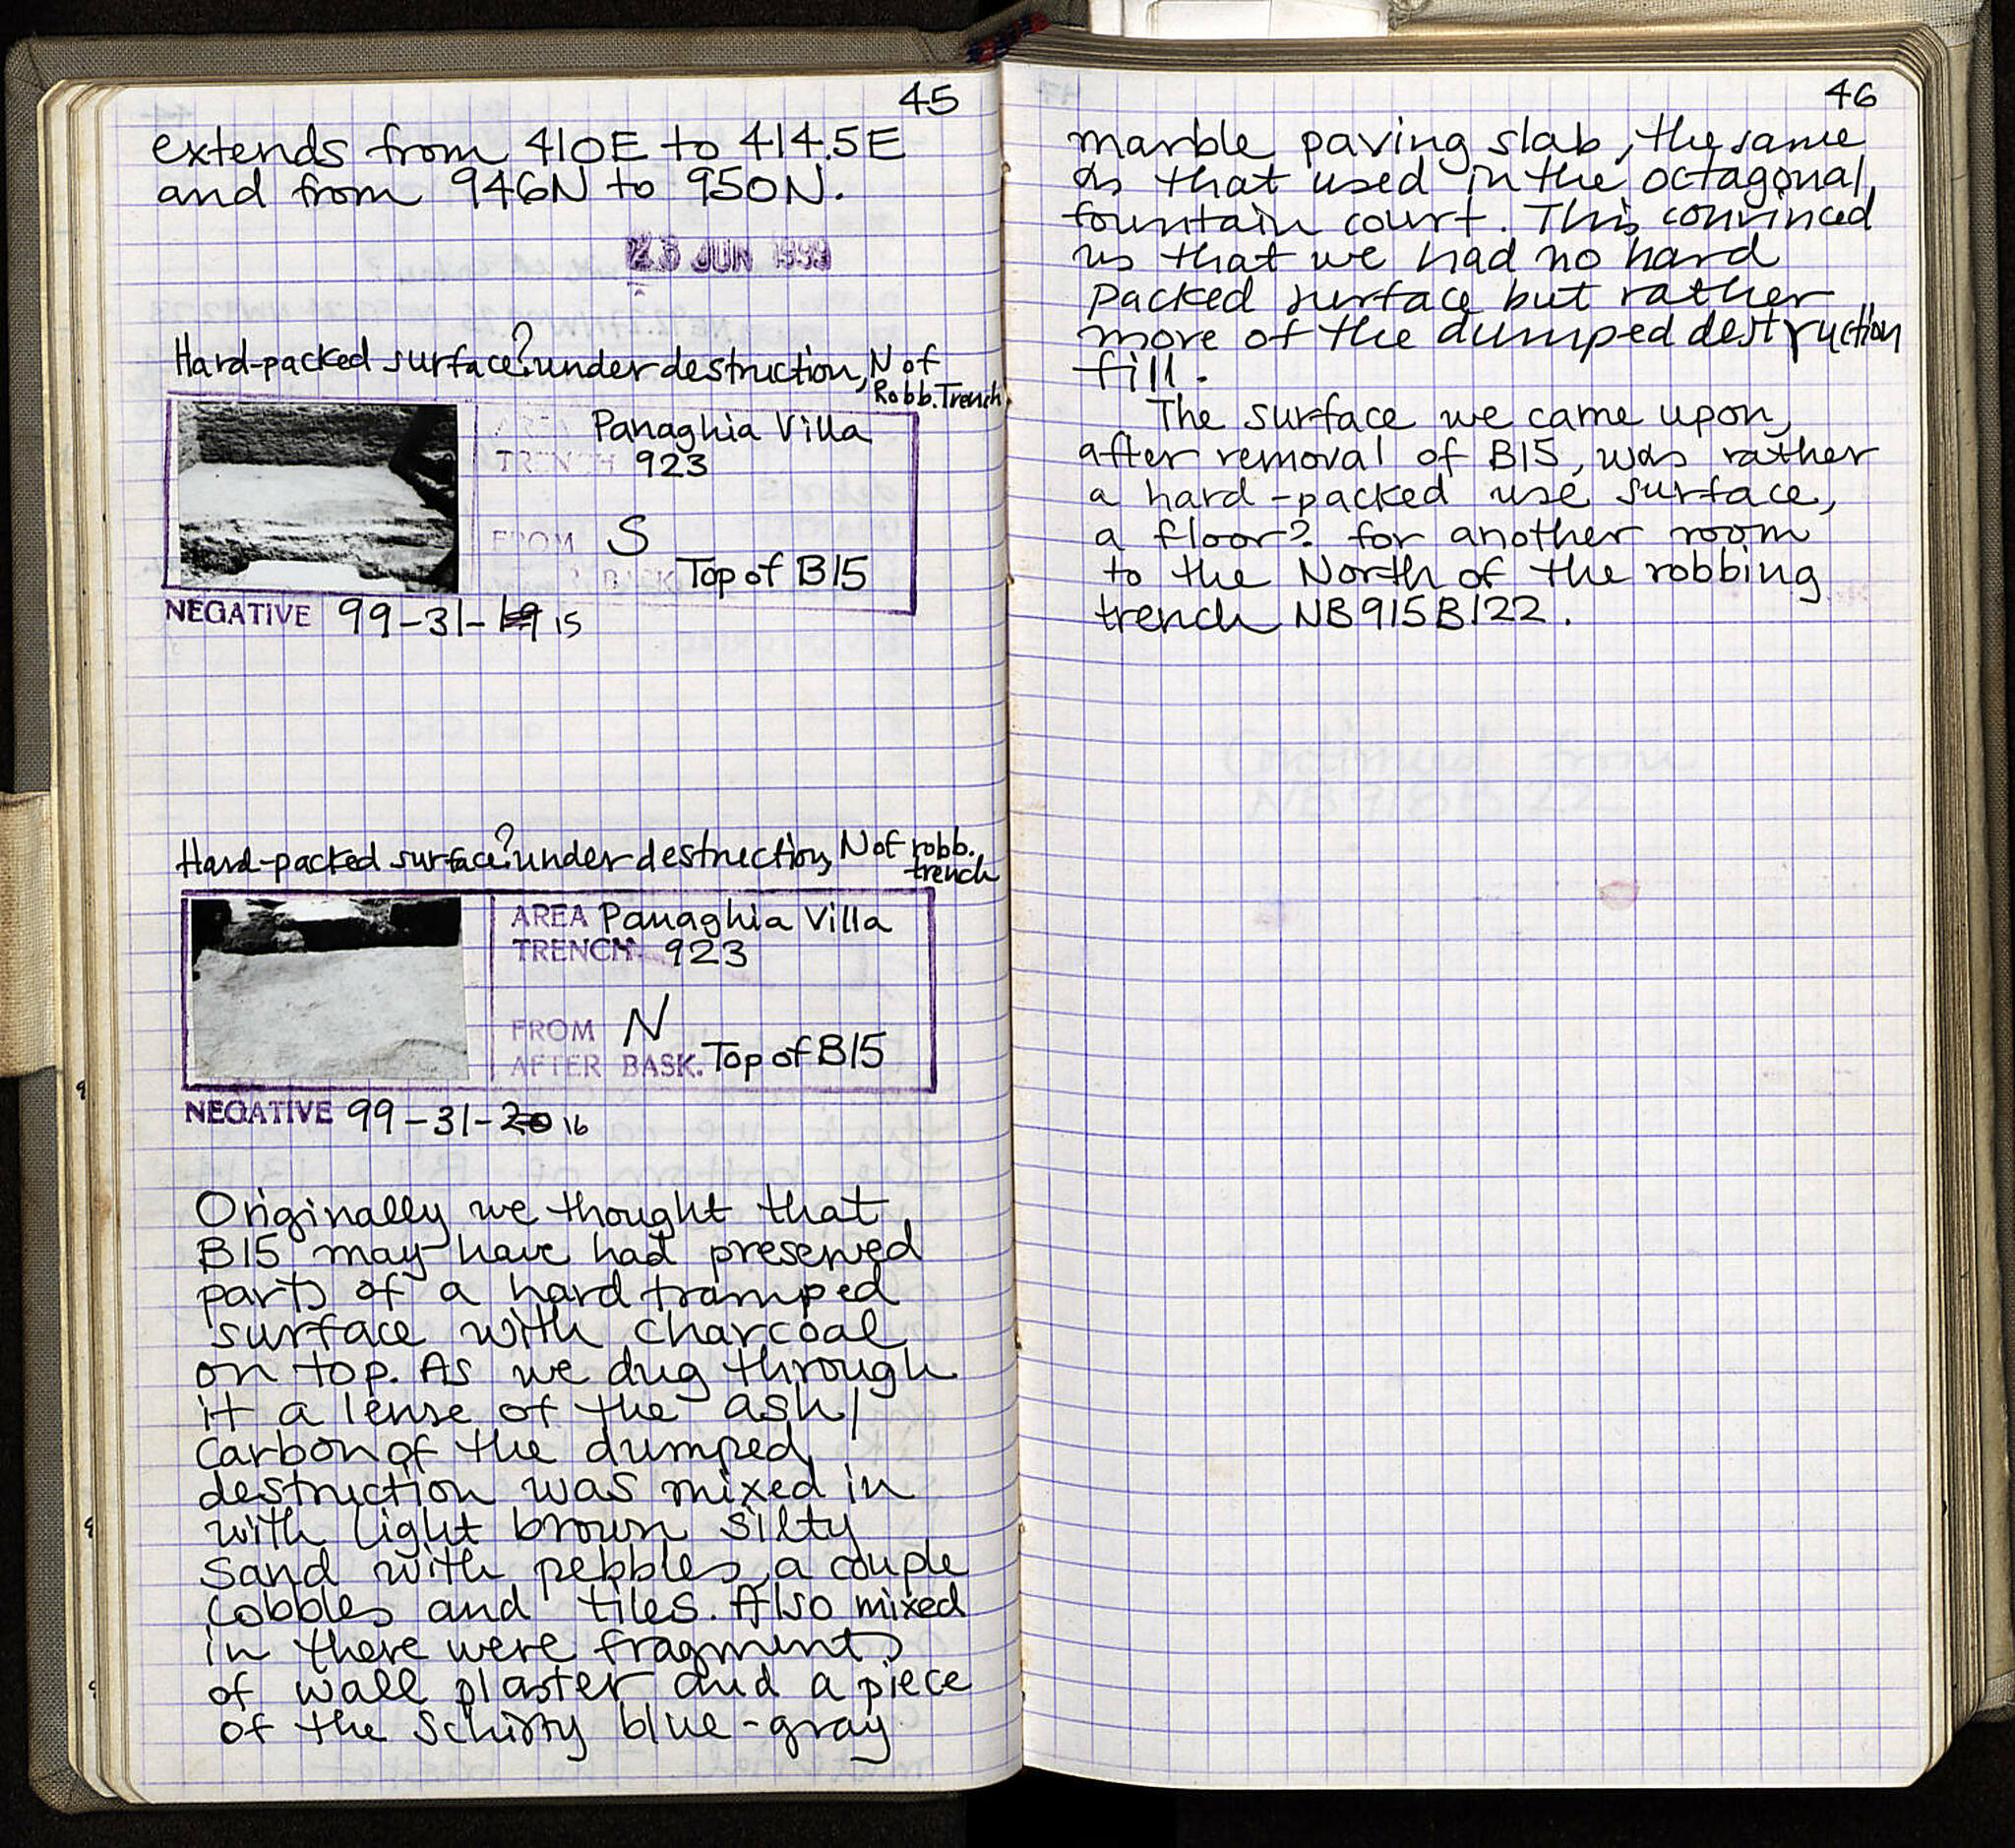 45
extends from 410E to 414.5E
and from 946N to 950N.
JUN 1999
Hard-packed surface? under destruction, N of
Robb. Trench
AREA Panaghia Villa
TRENCH 923
FROM S
BASK. Top of B15
NEGATIVE 99-31-19 15
Hard-packed surface? under destruction, N of robb.
trench
AREA Panaghia Villa
TRENCH 923
FROM N
AFTER BASK. Top of B15
NEGATIVE 99-31-20 16
Originally we thought that
B15 may have had preserved
parts of a hard tramped
surface with charcoal
on top. As we dug through
it a lense of the ash/
carbon of the dumped
destruction was mixed in
with light brown silty
sand with pebbles, a couple
cobbles and tiles. Also mixed
in there were fragments
of wall plaster and a piece
of the schisty blue-gray
46
marble paving slab, the same
as that used in the octagonal
fountain court. This convinced
us that we had no hard
packed surface but rather
more of the dumped destruction
fill.
The surface we came upon
after removal of B15, was rather
a hard-packed use surface,
a floor? for another room
to the North of the robbing
trench NB915B122.